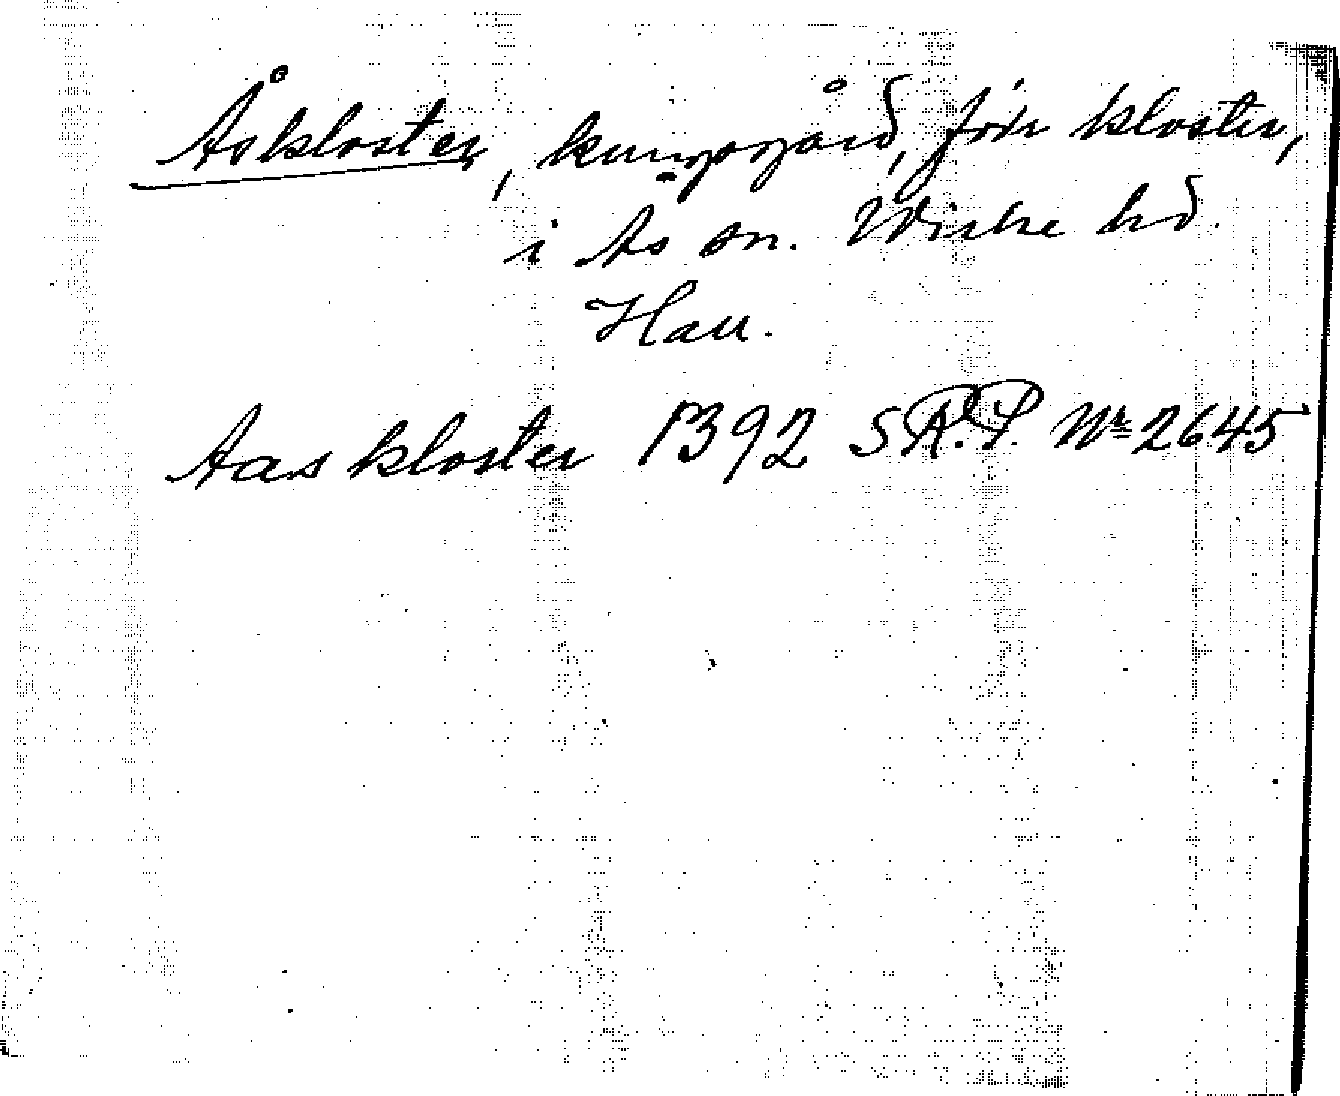 Åskloster, kungsgård, förr kloster,
i As sn. Wiske hd.
Hall.
Aaskloster 1392 S.R.P. Nr 2645